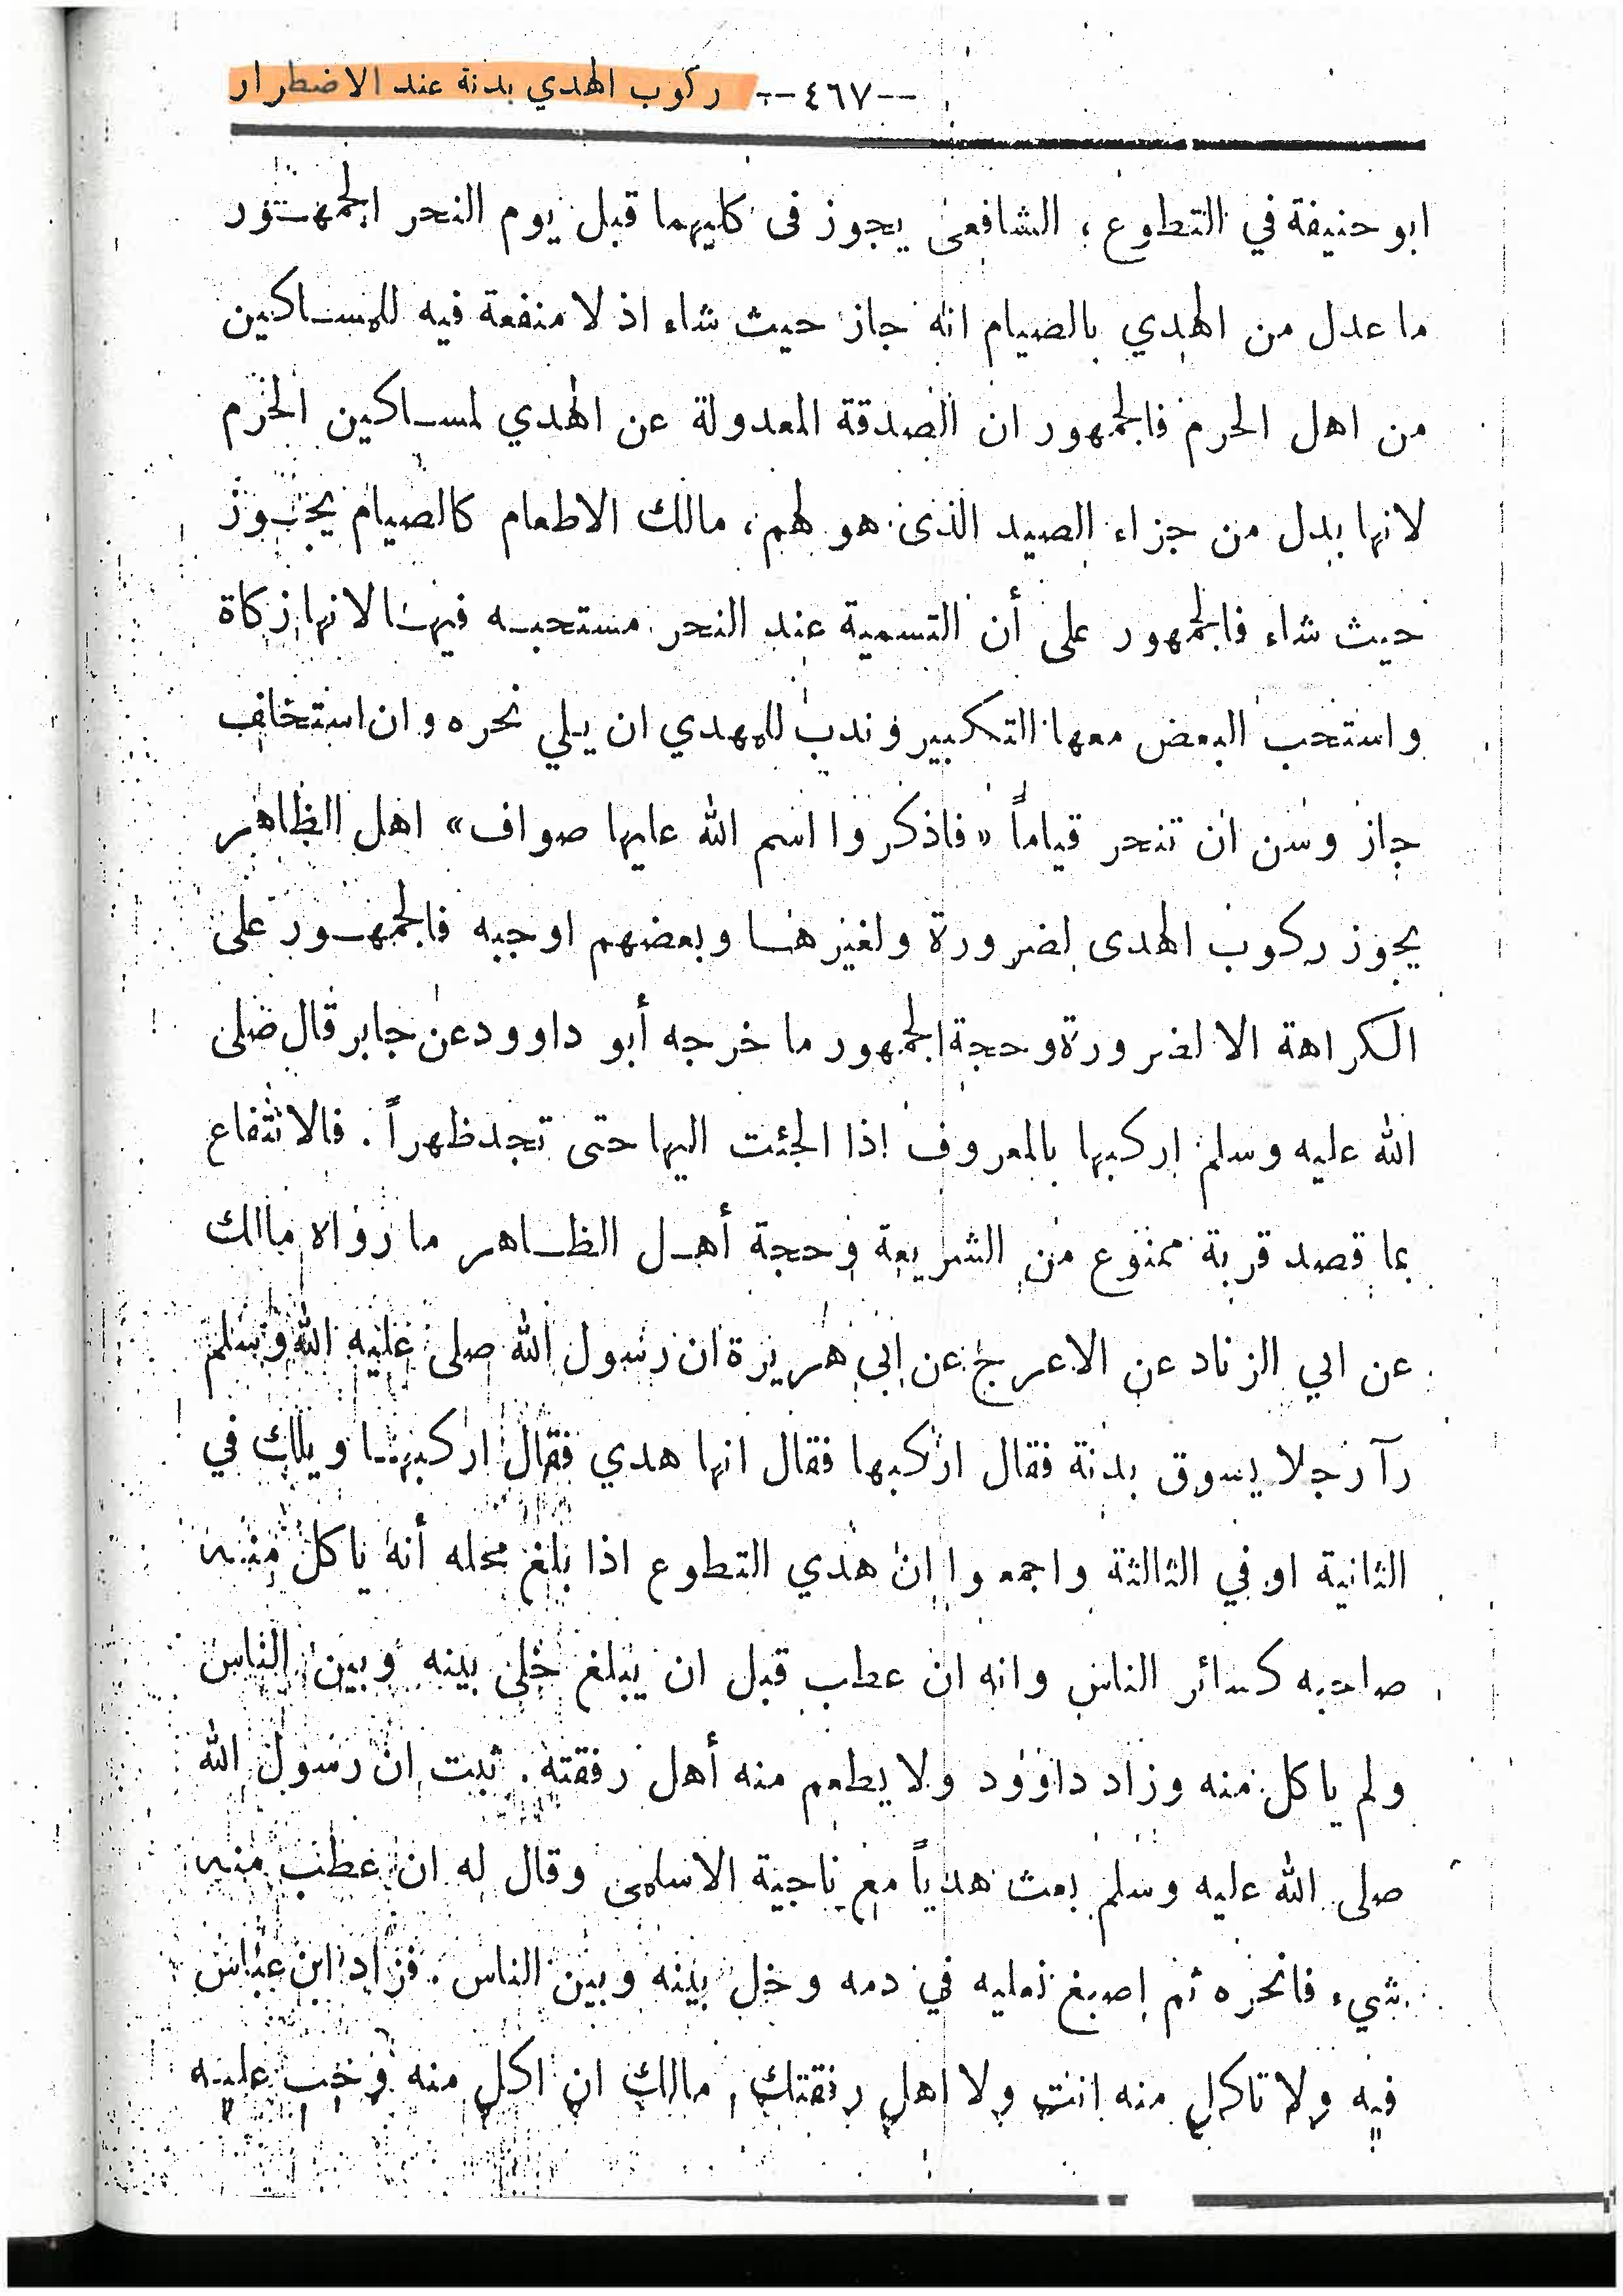 --٤٦٧-- ركوب الهدي بدنة عند الاضطرار
ابو حنيفة في التطوع، الشافعى يجوز فى كليهما قبل يوم النحر الجمهـور
ما عدل من الهدي بالصيام انه جاز حيث شاء اذ لا منفعة فيه للمساكين
من اهل الحرم فالجمهور ان الصدقة المعدولة عن الهدي لمساكين الحرم
لانها بدل من جزاء الصيد الذى هو لهم، مالك الاطعام كالصيام يجـوز
حيث شاء فالجمهور على أن التسمية عند النحر مستحبـه فيهـا لانها زكاة
واستحب البعض معها التكبير وندب للمهدي ان يلي نحره وان استخلف
جاز وسن ان تنحر قياماً «فاذكروا اسم الله عليها صواف» اهل الظاهر
يجوز ركوب الهدى لضرورة ولغيرهـا وبعضهم اوجبه فالجمهـور على
الكراهة الا لضرورة وحجة الجمهور ما خرجه أبو داوود عن جابر قال صلى
الله عليه وسلم اركبها بالمعروف اذا الجئت اليها حتى تجد ظهراً. فالانتفاع
بما قصد قربة ممنوع من الشريعة وحجة أهـل الظـاهر ما رواه مالك
عن ابي الزناد عن الاعرج عن ابي هريرة ان رسول الله صلى عليه الله وسلم
رآ رجلا يسوق بدنة فقال اركبها فقال انها هدي فقال اركبهـا ويلك في
الثانية او في الثالثة واجمعوا ان هدي التطوع اذا بلغ محله أنه ياكل منـه
صاحبه كسائر الناس وانه ان عطب قبل ان يبلغ خلى بينه وبين الناس
ولم ياكل منه وزاد داوود ولا يطعم منه أهل رفقته. ثبت ان رسول الله
صلى الله عليه وسلم بعث هدياً مع ناجية الاسلمى وقال له ان عطب منه
شيء فانحره ثم اصبغ نعليه في دمه وخل بينه وبين الناس. فزاد ابن عباس
فيه ولا تاكل منه انت ولا اهل رفقتك، مالك ان اكل منه وجب عليـه